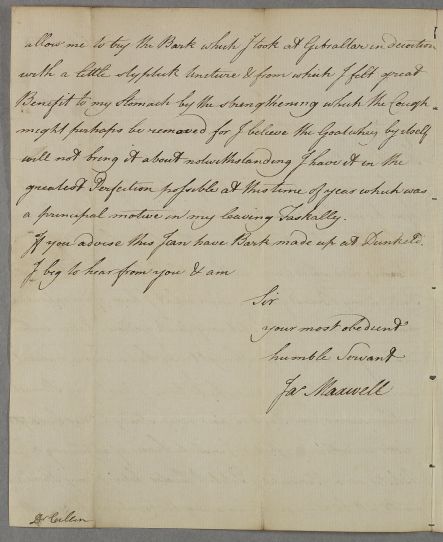 allow me to try the Bark which I took at Gibraltar in decoction
with a little styptick tincture & from which I felt great
Benefit to my Stomach by the strengthening which the Cough
might perhaps be removed for I believe the Goatwhey by itself
will not bring it about notwithstanding I have it in the
greatest Perfection possible at this time of year which was
a principal motive in my leaving Faskally.
If you advise this I can have Bark made up at Dunkeld.
I beg to hear from you & am
Sir
your most obedient
humble Servant
Jas Maxwell
Dr Cullen